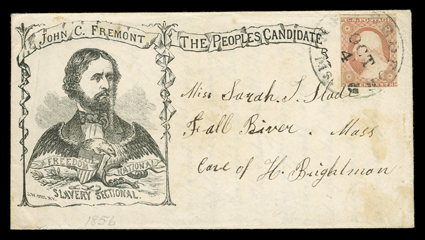 JOHN C. FREMONT
THE PEOPLES CANDIDATE
OCT
4
Miss Sarah T. Slade
Fall River. Mass
Care of H. Brightman
FREEDOM NATIONAL
SLAVERY SECTIONAL.
1856